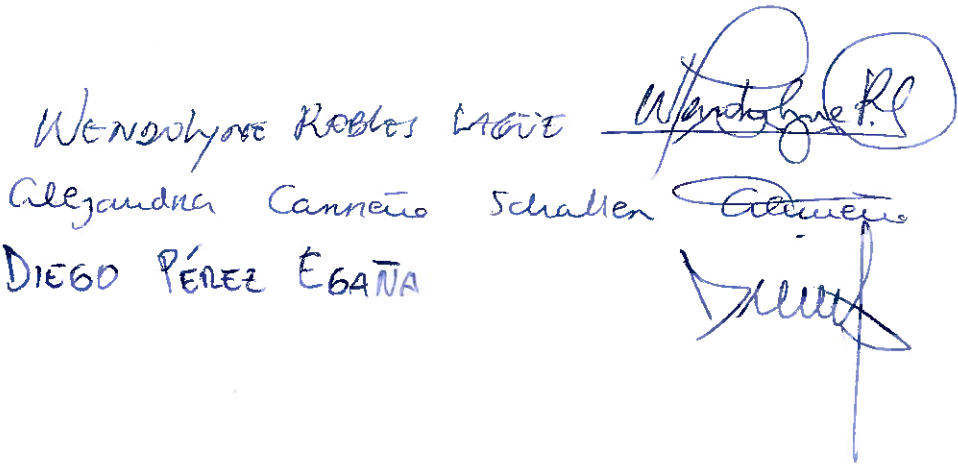 WENDOLYNE ROBLES LAGÜE Wendolyne R.
Alejandra Carreño Schaller ACarreño
DIEGO PÉREZ EGAÑA